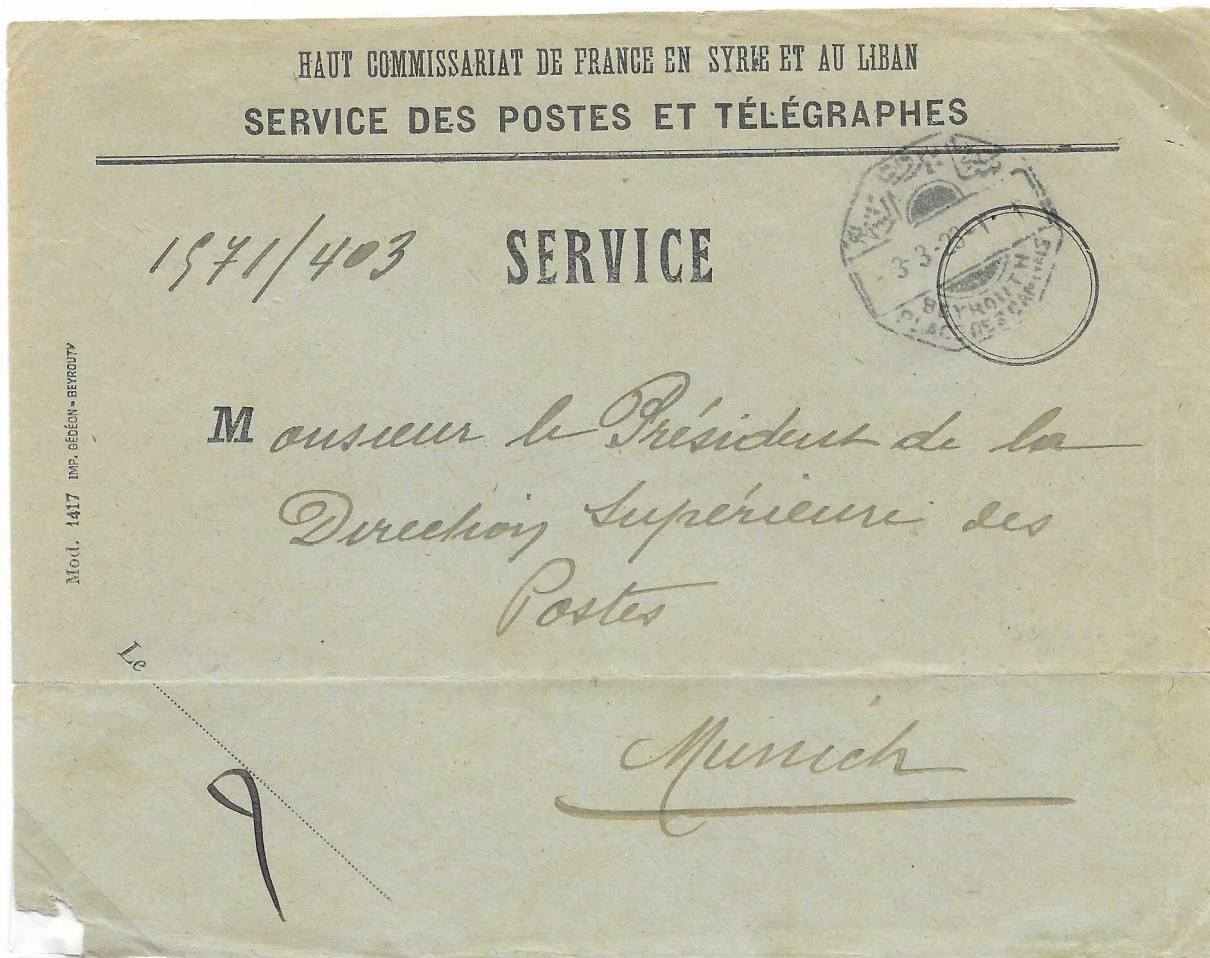 HAUT COMMISSARIAT DE FRANCE EN SYRIE ET AU LIBAN
SERVICE DES POSTES ET TÉLÉGRAPHES
1571/403
SERVICE
3-3-23
BEYROUTH
PLACE DES CANONS
Monsieur le Président de la
Direction Supérieure des
Postes
Munich
Le
Mod. 1417 IMP. GÉDÉON - BEYROUTH